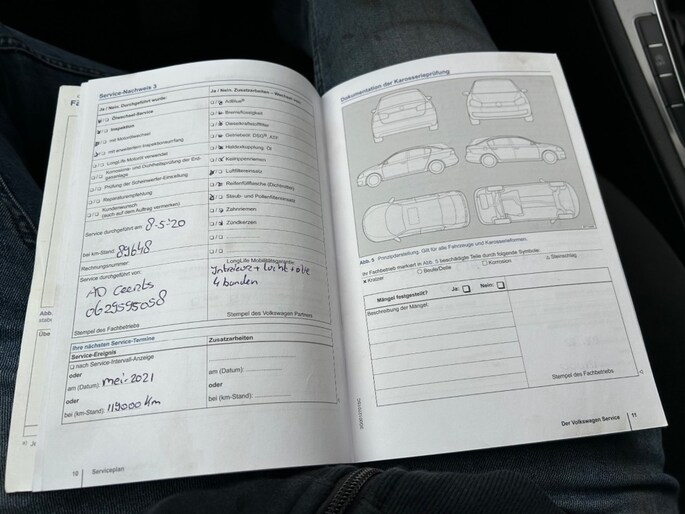 Service-Nachweis 3
Ja / Nein. Durchgeführt wurde:
Ölwechsel-Service
Inspektion
mit Motorölwechsel
mit erweitertem Inspektionsumfang
LongLife Motoröl verwendet
Korrosions- und Dichtheitsprüfung der Erd-
gasanlage
Prüfung der Scheinwerfer-Einstellung
Reparaturempfehlung
Kundenwunsch
(auch auf dem Auftrag vermerken)
Service durchgeführt am: 8-5-'20
bei km-Stand: 89648
Rechnungsnummer:
Service durchgeführt von:
AD
0629595058
Stempel des Fachbetriebs
Ja / Nein. Zusatzarbeiten
AdBlue®
Bremsflüssigkeit
Dieselkraftstofffilter
Getriebeöl: DSG®,
Haldexkupplung: Öl
Keilrippenriemen
Luftfiltereinsatz
Reifenfüllflasche (Dichtmittel)
Staub- und Pollenfiltereinsatz
Zahnriemen
Zündkerzen
LongLife Mobilitätsgarantie:
Interieur + lucht + olie
4 banden
Stempel des Volkswagen Partners
Ihre nächsten Service-Termine
Service-Ereignis
nach Service-Intervall-Anzeige
oder
am (Datum): mei-2021
oder
bei (km-Stand): 119000 km
Zusatzarbeiten
am (Datum):
oder
bei (km-Stand):
10 Serviceplan
Dokumentation der Karosserieprüfung
Abb. 5 Prinzipdarstellung. Gilt für alle Fahrzeuge und Karosserieformen.
Ihr Fachbetrieb markiert in Abb. 5 beschädigte Teile durch folgende Symbole:
x Kratzer
○ Beule/Delle
□ Korrosion
Steinschlag
Mängel festgestellt? Ja: Nein:
Beschreibung der Mängel:
Stempel des Fachbetriebs
Der Volkswagen Service 11